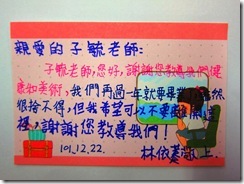 親愛的子毓老師:
子毓老師,您好,謝謝您教導我們健
康和美術,我們再過一年就要畢業 然
很捨不得,但我希望可以不要離開這
裡,謝謝您教導我們!
101.12.22. 林依 上